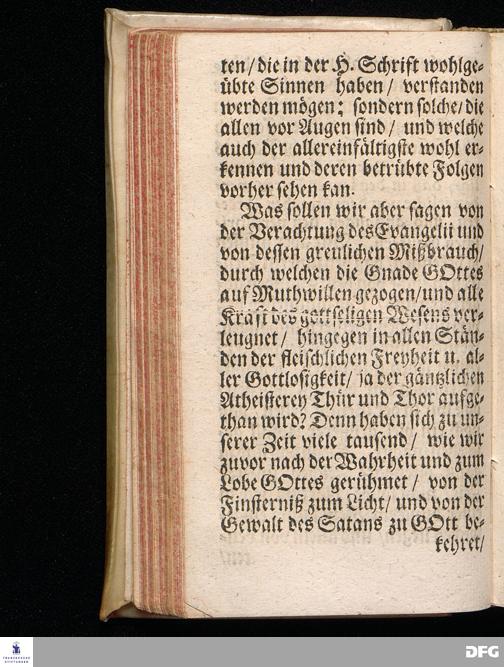 ten/ die in der H. Schrift wohlge-
übte Sinnen haben/ verstanden
werden mögen; sondern solche/ die
allen vor Augen sind/ und welche
auch der allereinfältigste wohl er-
kennen und deren betrübte Folgen
vorher sehen kan.
Was sollen wir aber sagen von
der Verachtung des Evangelii und
von dessen greulichen Mißbrauch/
durch welchen die Gnade GOttes
auf Muthwillen gezogen/ und alle
Kraft des gottseligen Wesens ver-
leugnet/ hingegen in allen Stän-
den der fleischlichen Freyheit u. al-
ler Gottlosigkeit/ ja der gäntzlichen
Atheisterey Thür und Thor aufge-
than wird? Denn haben sich zu un-
serer Zeit viele tausend/ wie wir
zuvor nach der Wahrheit und zum
Lobe GOttes gerühmet/ von der
Finsterniß zum Licht/ und von der
Gewalt des Satans zu GOtt be-
kehret/
FRANCKESCHE
STIFTUNGEN
DFG